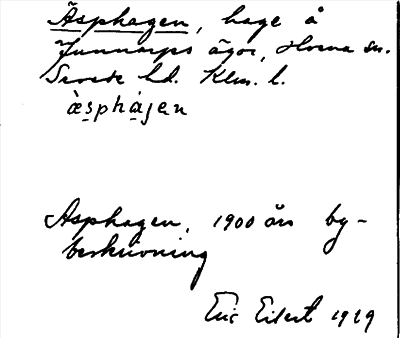 Äsphagen, hage å
Junnarps ägor, Hossa sn.
Svosk hd. Klm. l.
æ̀sphàgen
Asphagen, 1900 års by-
beskrivning
Eric Eilert 1929